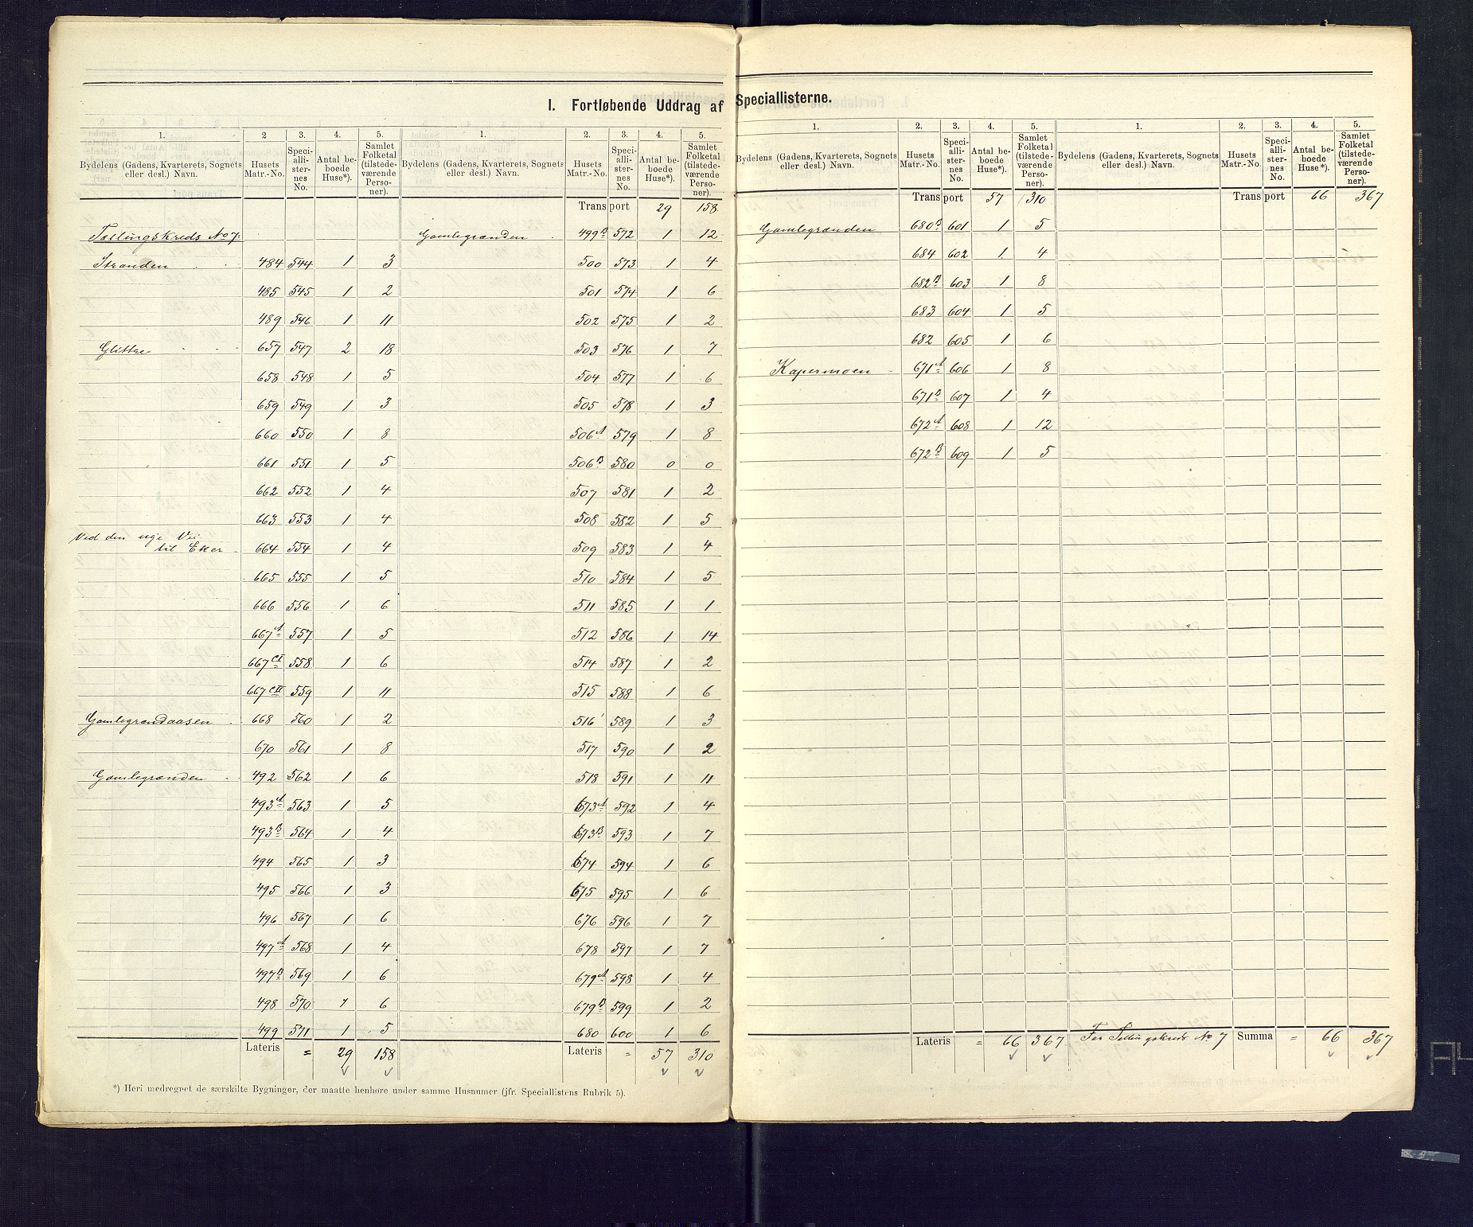 I. Fortløbende Uddrag af Speciallisterne.
1. 2 3. 4. 5. 1. 2. 3. 4. 5.
Bydelens (Gadens, Kvarterets, Sognets eller desl.) Navn. Husets Matr.-No. Specialisternes No. Antal beboede Huse*). Samlet Folketal (tilstedeværende Personer).
Bydelens (Gadens, Kvarterets, Sognets eller desl.) Navn. Husets Matr.-No. Speciallisternes No. Antal beboede Huse*). Samlet Folketal (tilstedeværende Personer).
Tællingskreds No 7.
Stranden 484 544 1 3
485 545 1 2
489 546 1 11
Glittre 657 547 2 18
658 548 1 5
659 549 1 3
660 550 1 8
661 551 1 5
662 552 1 4
663 553 1 4
Ved den nye Vei
til Eker 664 554 1 4
665 555 1 5
666 556 1 6
667 A 557 1 5
667 CI 558 1 6
667 CII 559 1 11
Gamlegrændaasen 668 560 1 2
670 561 1 8
Gamlegrænden 492 562 1 6
493 A 563 1 5
493 B 564 1 4
494 565 1 3
495 566 1 3
496 567 1 6
497 A 568 1 4
497 B 569 1 6
498 570 1 6
499 571 1 5
Lateris = 29 158
Transport 29 158
Gamlegrænden 499 B 572 1 12
500 573 1 4
501 574 1 6
502 575 1 2
503 576 1 7
504 577 1 6
505 578 1 3
506 A 579 1 8
506 B 580 0 0
507 581 1 2
508 582 1 5
509 583 1 4
510 584 1 5
511 585 1 1
512 586 1 14
514 587 1 2
515 588 1 6
516 589 1 3
517 590 1 2
518 591 1 11
673 A 592 1 4
673 B 593 1 7
674 594 1 6
675 595 1 6
676 596 1 7
678 597 1 7
679 A 598 1 4
679 B 599 1 2
680 600 1 6
Lateris = 57 310
*) Heri medregnet de særskilte Bygninger, der maatte henhøre under samme Husnumer (jfr. Speciallistens Rubrik 5).
1. 2. 3. 4. 5. 1. 2. 3. 4. 5.
Bydelens (Gadens, Kvarterets, Sognets eller desl.) Navn. Husets Matr.-No. Speciallisternes No. Antal beboede Huse*). Samlet Folketal (tilstedeværende Personer).
Bydelens (Gadens, Kvarterets, Sognets eller desl.) Navn. Husets Matr.-No. Speciallisternes No. Antal beboede Huse*). Samlet Folketal (tilstedeværende Personer).
Transport 57 310
Gamlegrænden 680 B 601 1 5
684 602 1 4
682 B 603 1 8
683 604 1 5
682 605 1 6
Kapermoen 671 A 606 1 8
671 B 607 1 4
672 A 608 1 12
672 B 609 1 5
Lateris = 66 367
Transport 66 367
For Tællingskreds No 7 Summa = 66 367